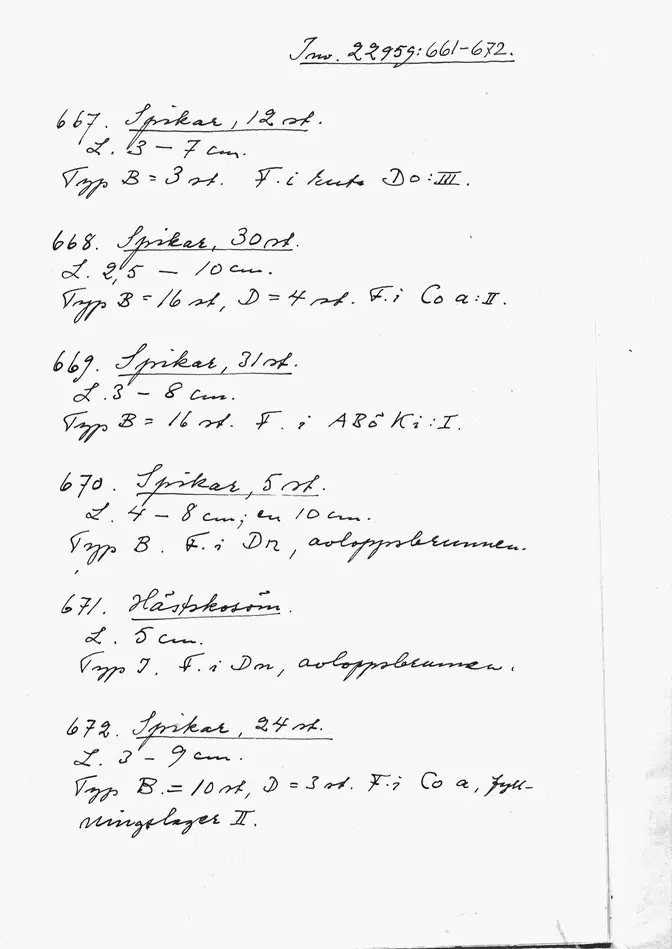 Inv. 22959:661-672.
667. Spikar, 12 st.
L. 3 - 7 cm.
Typ B = 3 st. F. i Do:III.
668. Spikar, 30 st.
L. 2,5 - 10 cm.
Typ B = 16 st, D = 4 st. F. i Co a:II.
669. Spikar, 31 st.
L. 3 - 8 cm.
Typ B = 16 st. F. i ABöKi:I.
670. Spikar, 5 st.
L. 4 - 8 cm; en 10 cm.
Typ B. F. i Dn, avloppsbrunnen.
671. Hästskosöm.
L. 5 cm.
Typ J. F. i Dn, avloppsbrunnen.
672. Spikar, 24 st.
L. 3 - 9 cm.
Typ B. = 10 st, D = 3 st. F. i Co a, fyll-
ningslager II.